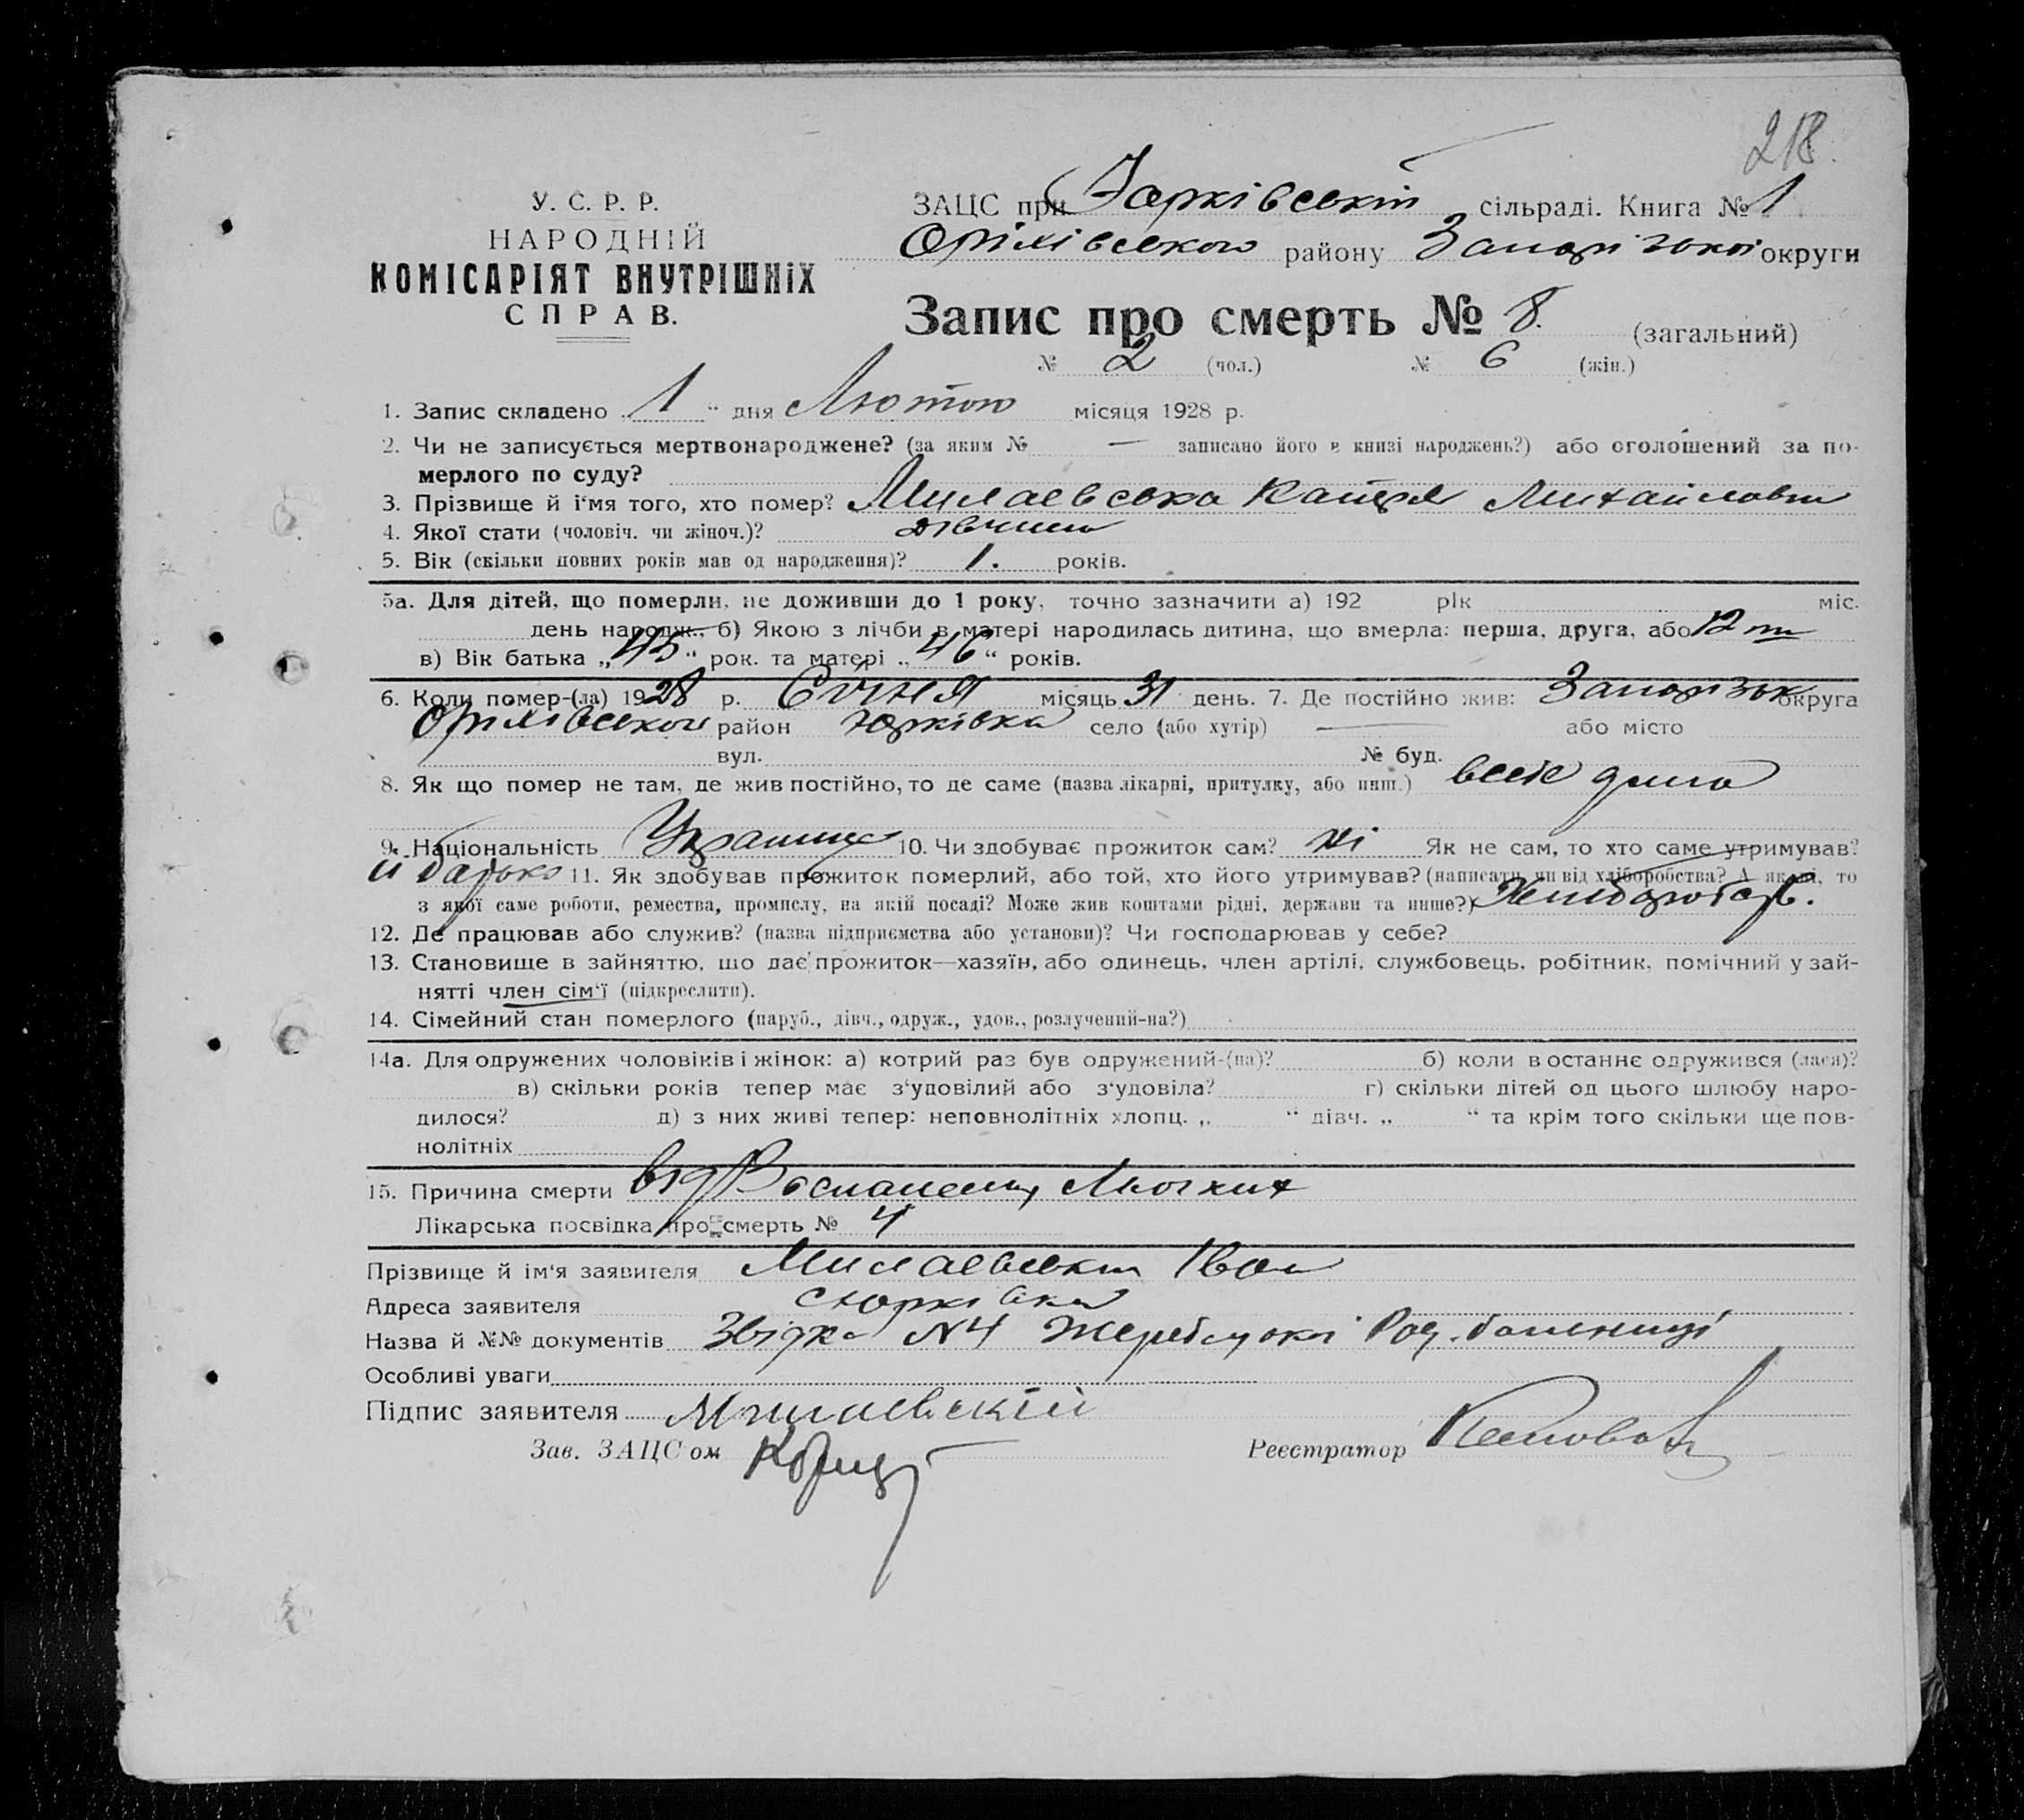 218.
У. С. Р. Р.
НАРОДНІЙ
КОМІСАРІЯТ ВНУТРІШНІХ
СПРАВ.
ЗАЦС при Юрківській сільраді. Книга № 1
Оріхівського району Запорізької округи
Запис про смерть № 8. (загальний)
№ 2 (чол.) № 6 (жін.)
1. Запис складено „ 1 “ дня Лютого місяця 1928 р.
2. Чи не записується мертвонароджене? (за яким № — записано його в книзі народжень?) або оголошений за по-
мерлого по суду?
3. Прізвище й і‘мя того, хто помер? Милаевська Катря Михайловна
4. Якої стати (чоловіч. чи жіноч.)? дівчина
5. Вік (скільки повних років мав од народження)? 1. років.
5а. Для дітей, що померли, не доживши до 1 року, точно зазначити а) 192 рік міс.
день народж., б) Якою з лічби в матері народилась дитина, що вмерла: перша, друга, або 12 та
в) Вік батька „45“ рок. та матері „46“ років.
6. Коли помер-(ла) 1928 р. Січня місяць 31 день. 7. Де постійно жив: Запоріжж округа
Оріхівського район Юрківка село (або хутір) — або місто
вул. № буд.
8. Як що помер не там, де жив постійно, то де саме (назва лікарні, притулку, або инш.) вдома
9. Національність Українка 10. Чи здобуває прожиток сам? ні Як не сам, то хто саме утримував?
її батько 11. Як здобував прожиток померлий, або той, хто його утримував? (написати, чи від хліборобства? А як ні, то
з якої саме роботи, ремества, промислу, на якій посаді? Може жив коштами рідні, держави та инше?) Хліборобств.
12. Де працював або служив? (назва підприємства або установи)? Чи господарював у себе?
13. Становище в зайняттю, що дає прожиток—хазяїн, або одинець, член артілі, службовець, робітник, помічний у зай-
нятті член сім‘ї (підкреслити).
14. Сімейний стан померлого (паруб., дівч., одруж., удов., розлучений-на?)
14а. Для одружених чоловіків і жінок: а) котрий раз був одружений-(на)? б) коли в останнє одружився (лася)?
в) скільки років тепер має з‘удовілий або з‘удовіла? г) скільки дітей од цього шлюбу наро-
дилося? д) з них живі тепер: неповнолітніх хлопц. „ “ дівч. „ “ та крім того скільки ще пов-
нолітніх
15. Причина смерти від Воспаления Льогких
Лікарська посвідка про смерть № 4
Прізвище й ім‘я заявителя Милаевський Іван
Адреса заявителя с Юрківка
Назва й №№ документів Звідка №4 Жеребецької Рад. больниці
Особливі уваги
Підпис заявителя Милаевский
Зав. ЗАЦС ом
Реєстратор